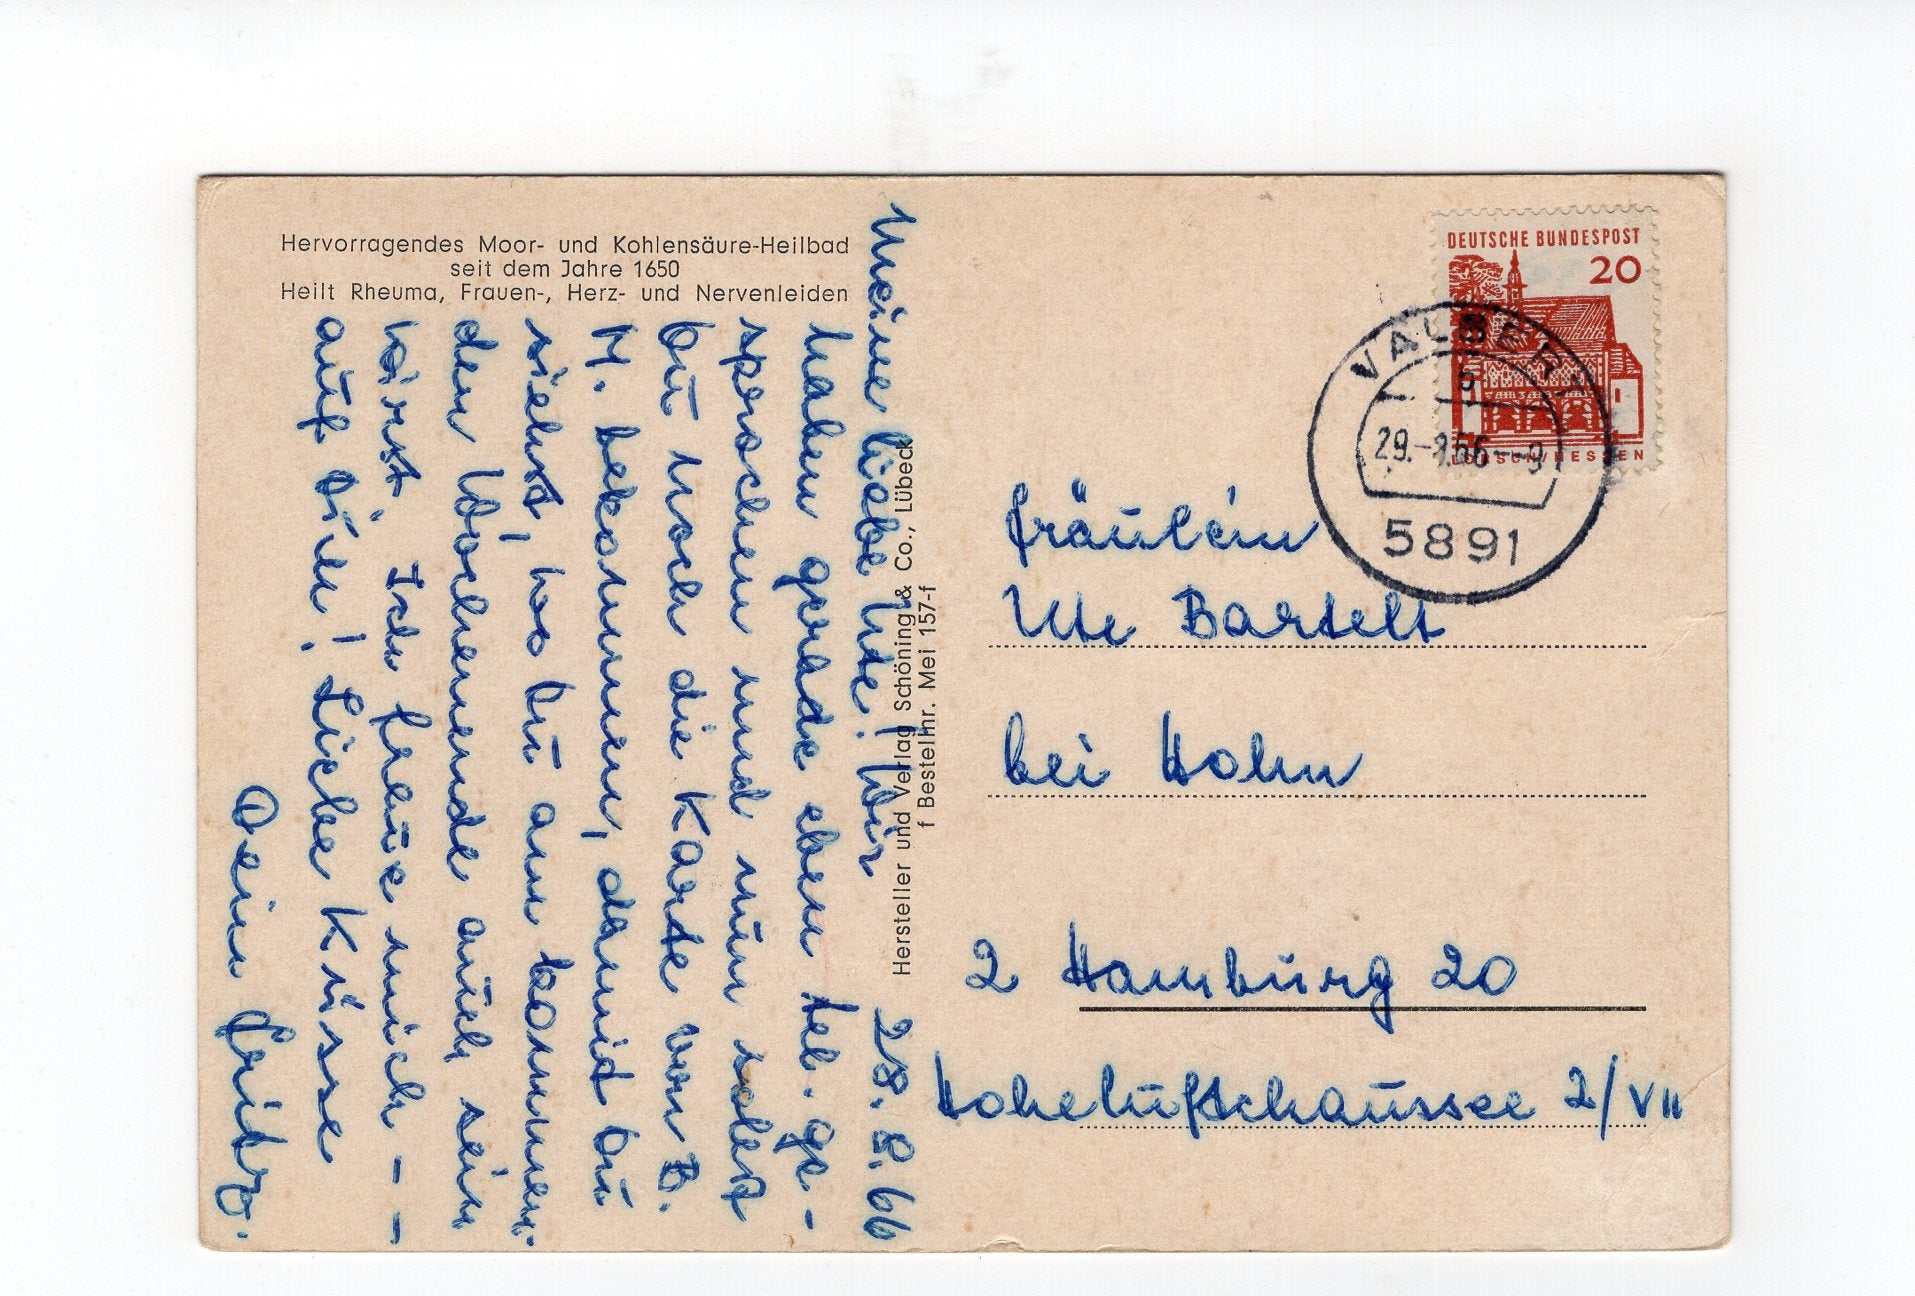 Hervorragendes Moor- und Kohlensäure-Heilbad
seit dem Jahre 1650
Heilt Rheuma, Frauen-, Herz- und Nervenleiden
28.8.66
Meine liebe Ute! Wir
haben gerade eben tel. ge-
sprochen und nun sollst
Du noch die Karte von B.
M. bekommen, damit Du
siehst, wo Du am kommen-
den Wochenende auch sein
wirst. Ich freue mich - -
auf Dich! Liebe Küsse
Dein Fritz.
Hersteller und Verlag Schöning & Co., Lübeck
f Bestellnr. Mei 157-f
DEUTSCHE BUNDESPOST
20
LORSCH/HESSEN
VALBERT
29.-8.66-9
5891
Fräulein
Ute Bartelt
bei Hohn
2 Hamburg 20
Hoheluftchaussee 2/VII